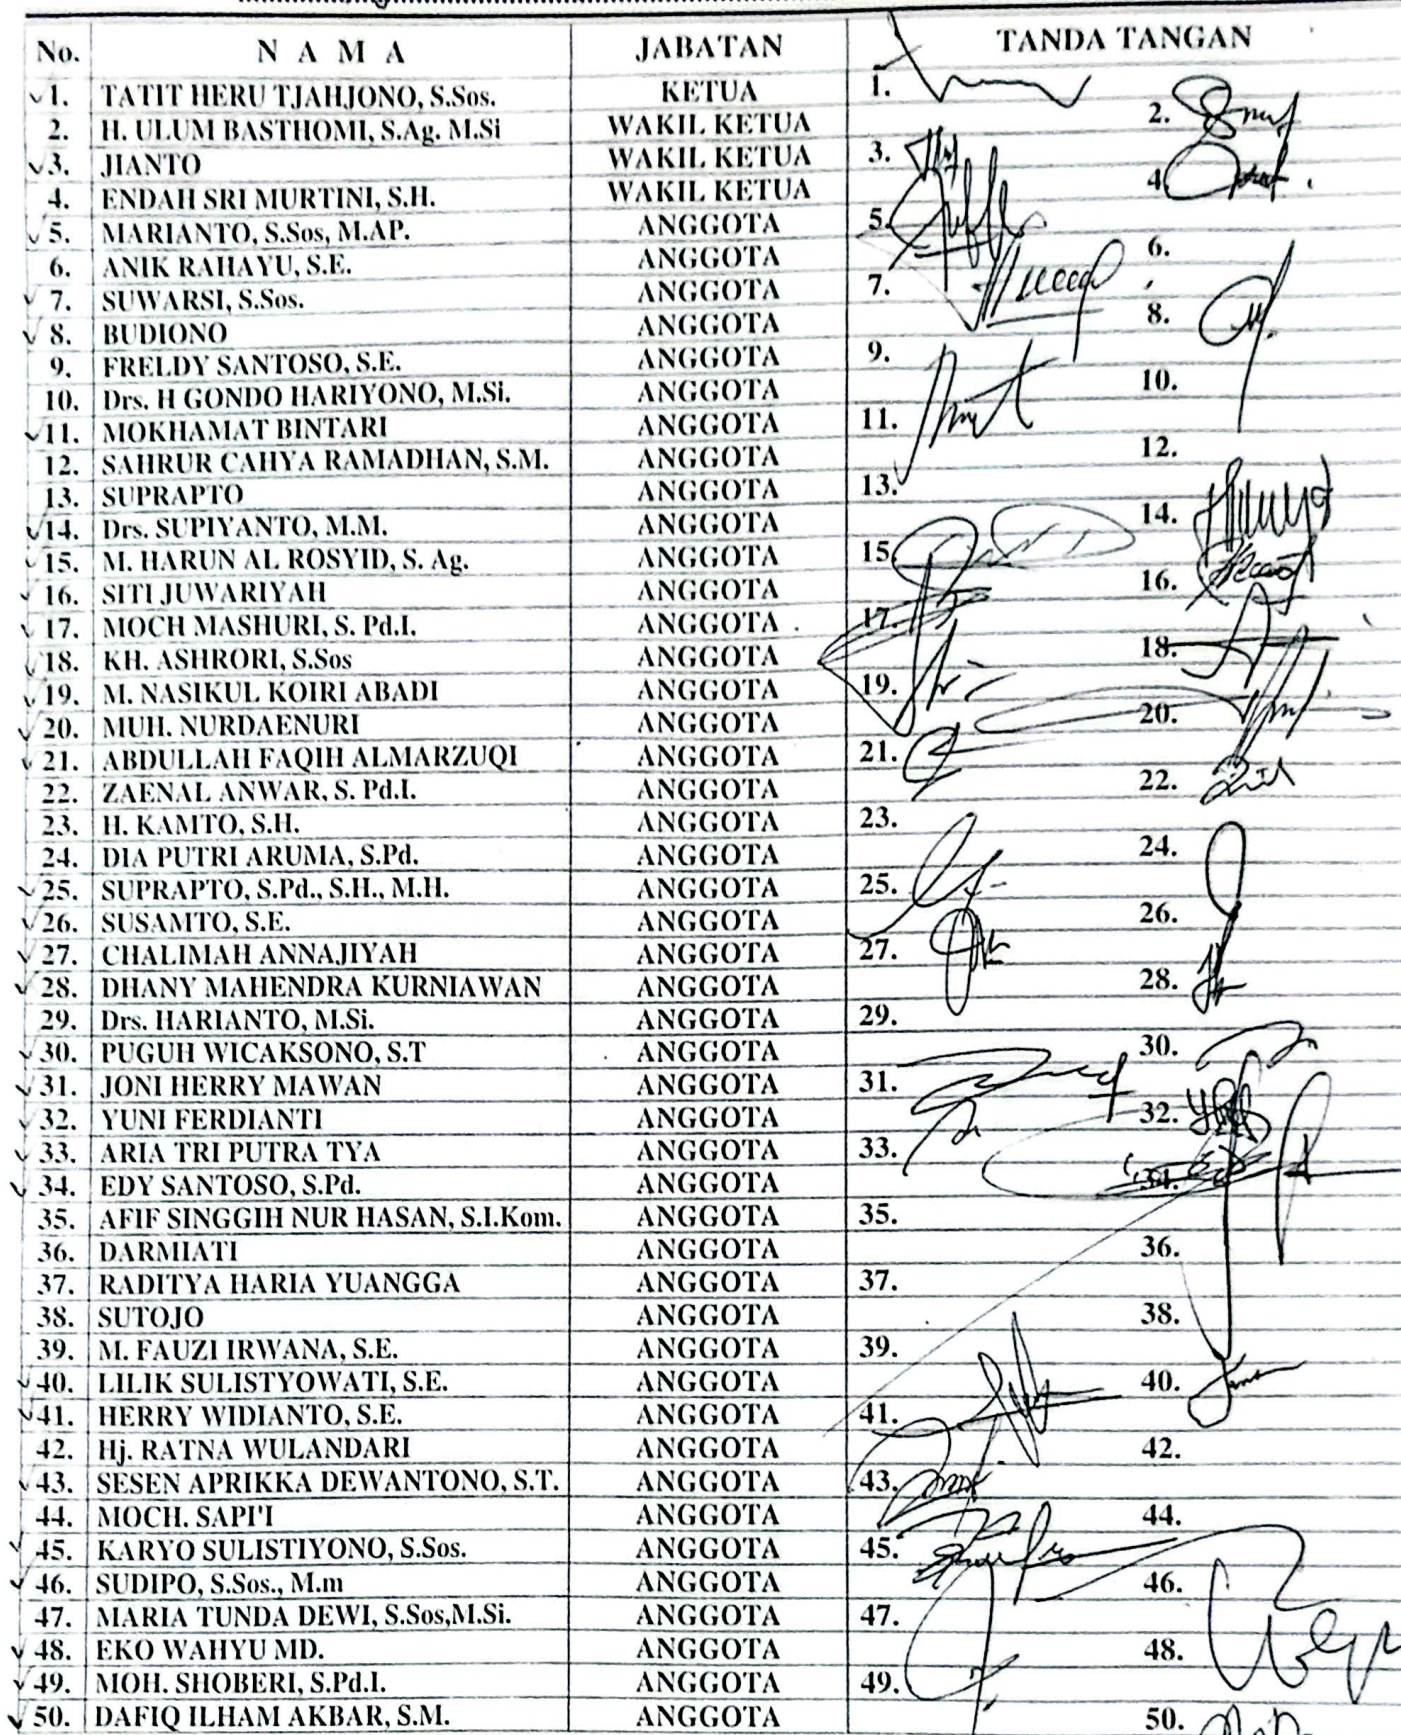 No. N A M A JABATAN TANDA TANGAN
1. TATIT HERU TJAHJONO, S.Sos. KETUA 1.
2. H. ULUM BASTHOMI, S.Ag. M.Si WAKIL KETUA 2.
3. JIANTO WAKIL KETUA 3.
4. ENDAH SRI MURTINI, S.H. WAKIL KETUA 4.
5. MARIANTO, S.Sos, M.AP. ANGGOTA 5.
6. ANIK RAHAYU, S.E. ANGGOTA 6.
7. SUWARSI, S.Sos. ANGGOTA 7.
8. BUDIONO ANGGOTA 8.
9. FRELDY SANTOSO, S.E. ANGGOTA 9.
10. Drs. H GONDO HARIYONO, M.Si. ANGGOTA 10.
11. MOKHAMAT BINTARI ANGGOTA 11.
12. SAHRUR CAHYA RAMADHAN, S.M. ANGGOTA 12.
13. SUPRAPTO ANGGOTA 13.
14. Drs. SUPIYANTO, M.M. ANGGOTA 14.
15. M. HARUN AL ROSYID, S. Ag. ANGGOTA 15
16. SITI JUWARIYAH ANGGOTA 16.
17. MOCH MASHURI, S. Pd.I. ANGGOTA 17.
18. KH. ASHRORI, S.Sos ANGGOTA 18.
19. M. NASIKUL KOIRI ABADI ANGGOTA 19.
20. MUH. NURDAENURI ANGGOTA 20.
21. ABDULLAH FAQIH ALMARZUQI ANGGOTA 21.
22. ZAENAL ANWAR, S. Pd.I. ANGGOTA 22.
23. H. KAMTO, S.H. ANGGOTA 23.
24. DIA PUTRI ARUMA, S.Pd. ANGGOTA 24.
25. SUPRAPTO, S.Pd., S.H., M.H. ANGGOTA 25.
26. SUSAMTO, S.E. ANGGOTA 26.
27. CHALIMAH ANNAJIYAH ANGGOTA 27.
28. DHANY MAHENDRA KURNIAWAN ANGGOTA 28.
29. Drs. HARIANTO, M.Si. ANGGOTA 29.
30. PUGUH WICAKSONO, S.T ANGGOTA 30.
31. JONI HERRY MAWAN ANGGOTA 31.
32. YUNI FERDIANTI ANGGOTA 32.
33. ARIA TRI PUTRA TYA ANGGOTA 33.
34. EDY SANTOSO, S.Pd. ANGGOTA 34.
35. AFIF SINGGIH NUR HASAN, S.I.Kom. ANGGOTA 35.
36. DARMIATI ANGGOTA 36.
37. RADITYA HARIA YUANGGA ANGGOTA 37.
38. SUTOJO ANGGOTA 38.
39. M. FAUZI IRWANA, S.E. ANGGOTA 39.
40. LILIK SULISTYOWATI, S.E. ANGGOTA 40.
41. HERRY WIDIANTO, S.E. ANGGOTA 41.
42. Hj. RATNA WULANDARI ANGGOTA 42.
43. SESEN APRIKKA DEWANTONO, S.T. ANGGOTA 43.
44. MOCH. SAPI'I ANGGOTA 44.
45. KARYO SULISTIYONO, S.Sos. ANGGOTA 45.
46. SUDIPO, S.Sos., M.m ANGGOTA 46.
47. MARIA TUNDA DEWI, S.Sos,M.Si. ANGGOTA 47.
48. EKO WAHYU MD. ANGGOTA 48.
49. MOH. SHOBERI, S.Pd.I. ANGGOTA 49.
50. DAFIQ ILHAM AKBAR, S.M. ANGGOTA 50.